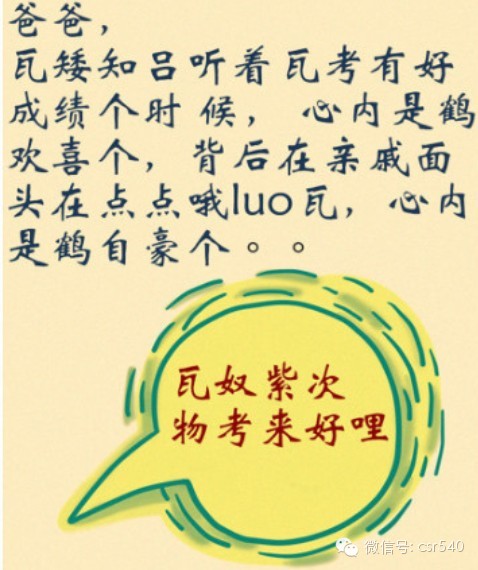 爸爸，
瓦矮知吕听着瓦考有好
成绩个时候，心内是鹤
欢喜个，背后在亲戚面
头在点点哦luo瓦，心内
是鹤自豪个。。
瓦奴紫次
物考来好哩
微信号: csr540